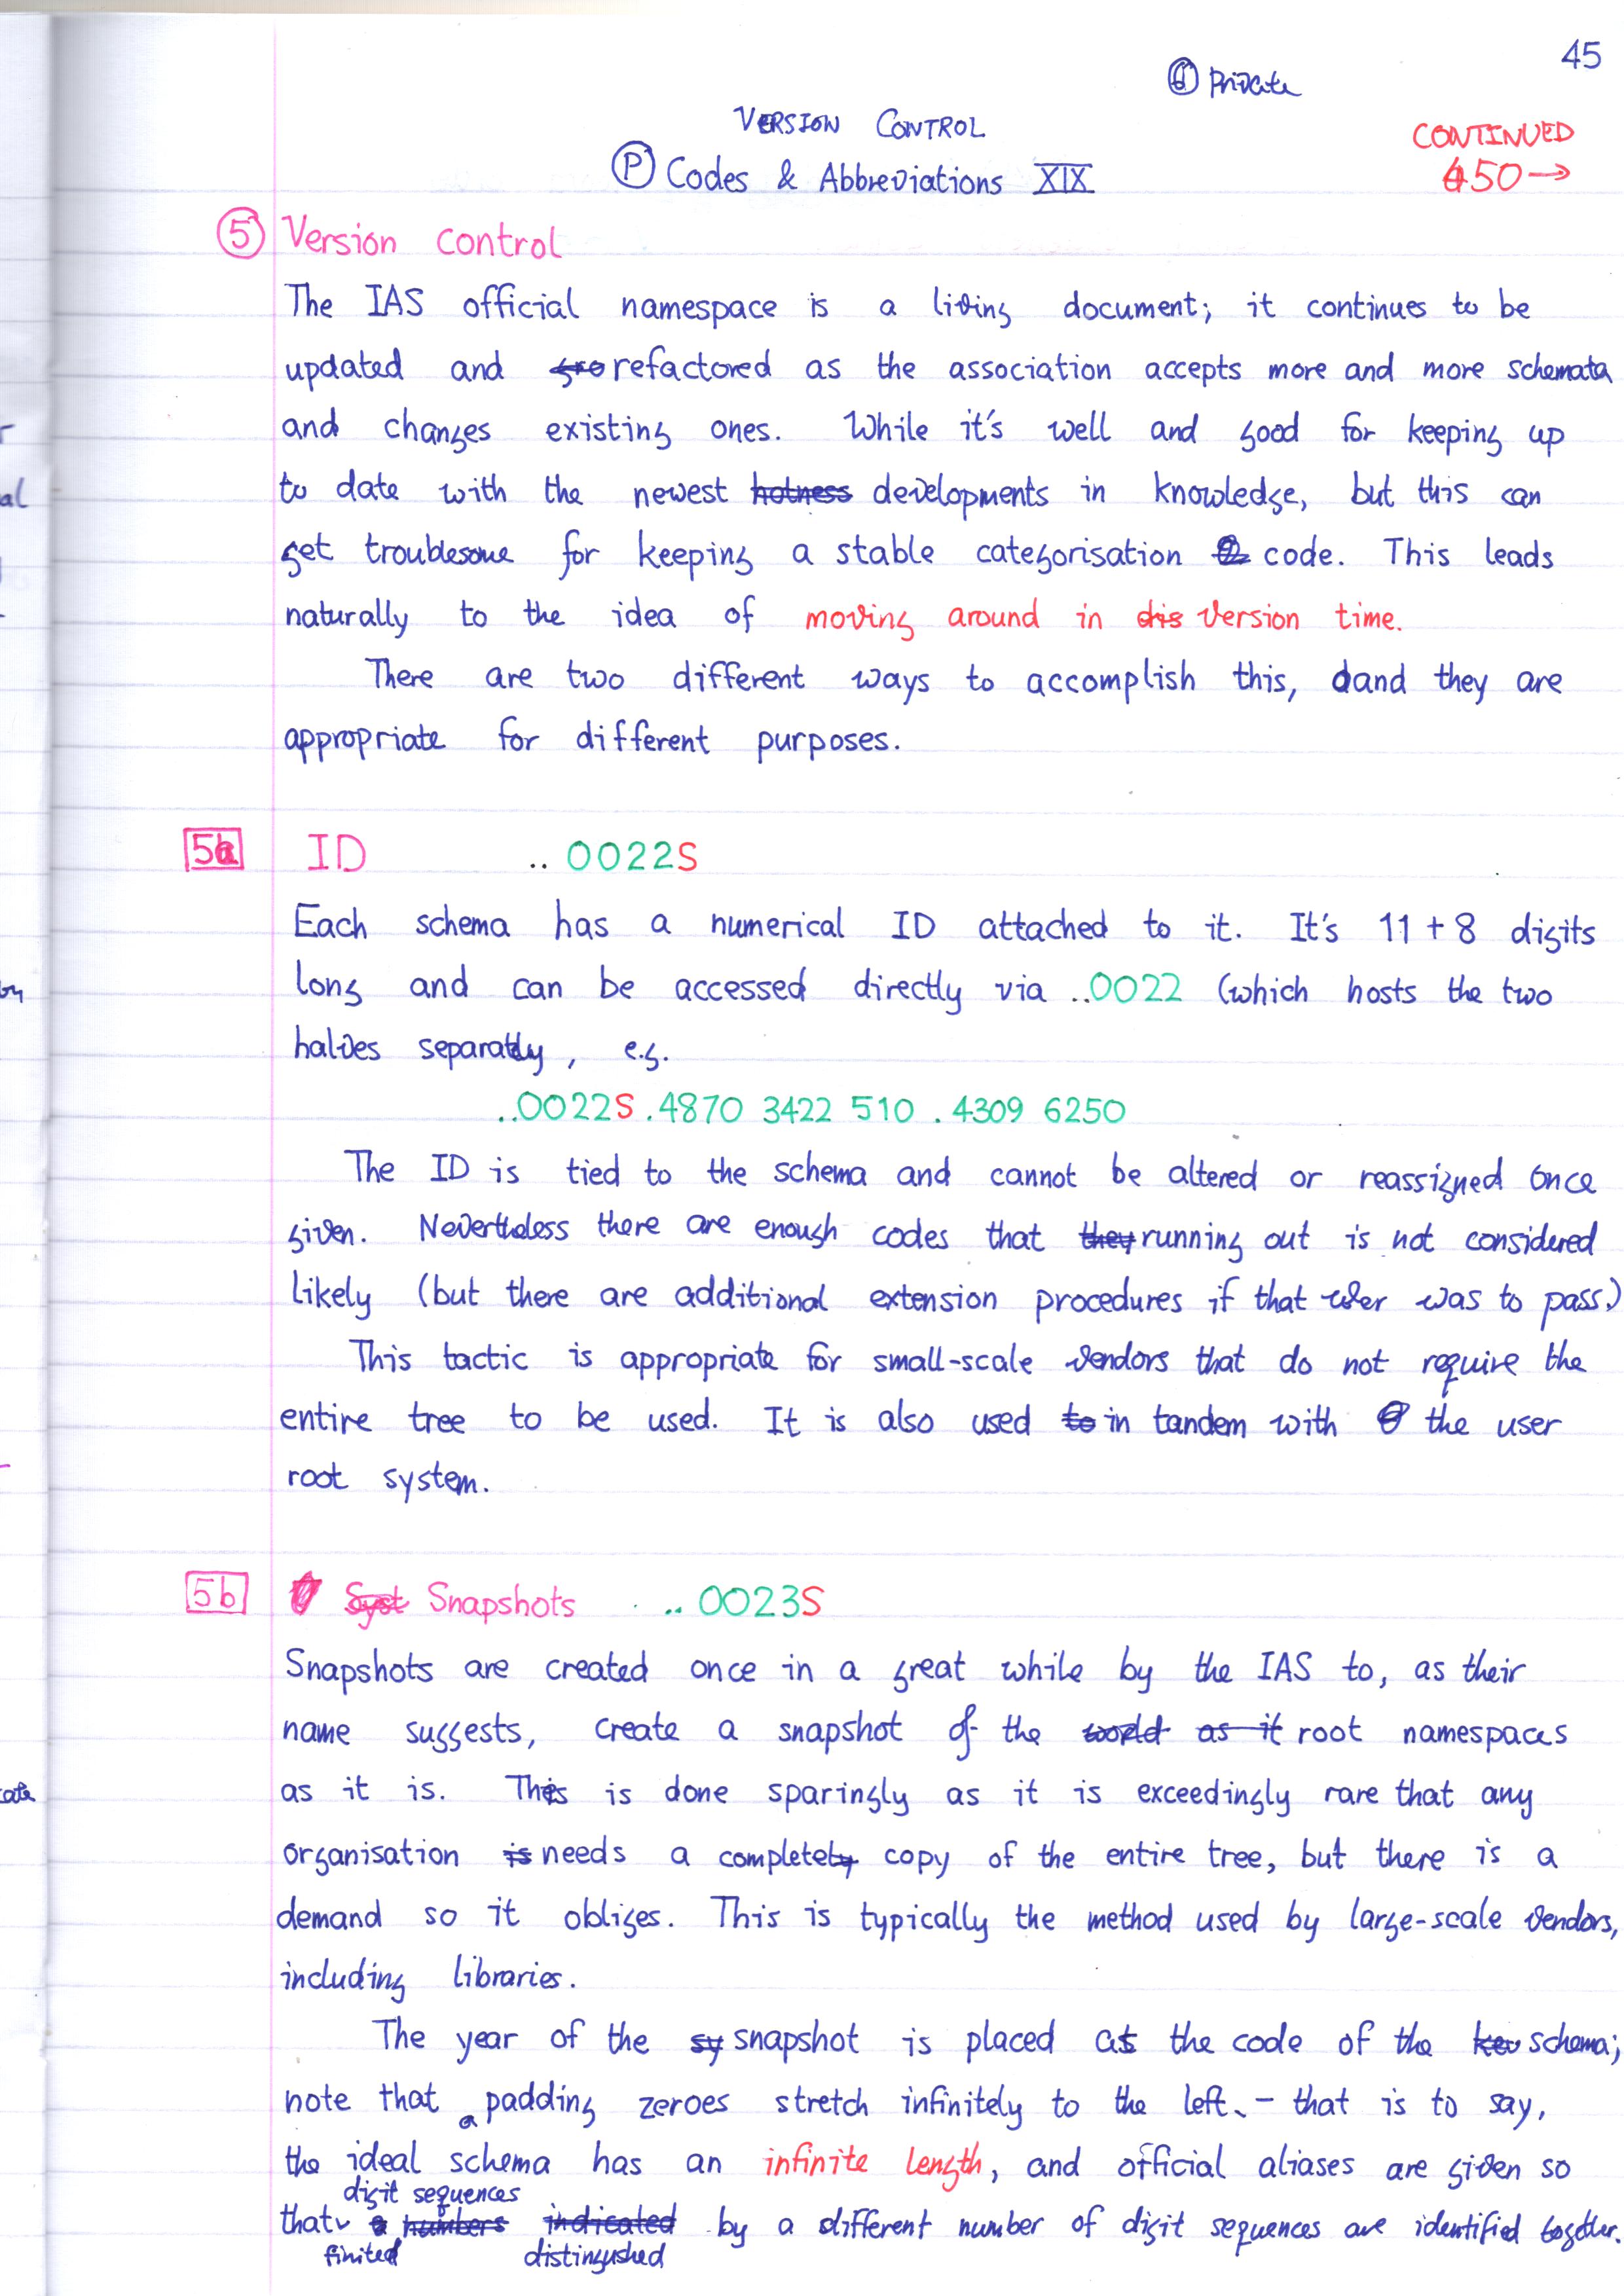 45
⑥ Private
VERSION CONTROL
CONTINUED
Ⓟ Codes & Abbreviations XIX
450→
⑤ Version control
The IAS official namespace is a living document; it continues to be
updated and refactored as the association accepts more and more schemata
and changes existing ones. While it's well and good for keeping up
to date with the newest hotness developments in knowledge, but this can
get troublesome for keeping a stable categorisation code. This leads
naturally to the idea of moving around in dis version time.
There are two different ways to accomplish this, and they are
appropriate for different purposes.
5a ID ..0022S
Each schema has a numerical ID attached to it. It's 11 + 8 digits
long and can be accessed directly via ..0022 (which hosts the two
halves separately, e.g.
..0022S.4870 3422 510 . 4309 6250
The ID is tied to the schema and cannot be altered or reassigned once
given. Nevertheless there are enough codes that they running out is not considered
likely (but there are additional extension procedures if that was to pass.)
This tactic is appropriate for small-scale vendors that do not require the
entire tree to be used. It is also used to in tandem with the user
root system.
5b Syst Snapshots ..0023S
Snapshots are created once in a great while by the IAS to, as their
name suggests, create a snapshot of the world as it root namespaces
as it is. This is done sparingly as it is exceedingly rare that any
organisation is needs a complete copy of the entire tree, but there is a
demand so it obliges. This is typically the method used by large-scale vendors,
including libraries.
The year of the sy snapshot is placed as the code of the schema;
note that a padding zeroes stretch infinitely to the left - that is to say,
the ideal schema has an infinite length, and official aliases are given so
digit sequences
that numbers indicated by a different number of digit sequences are identified together.
finited distinguished